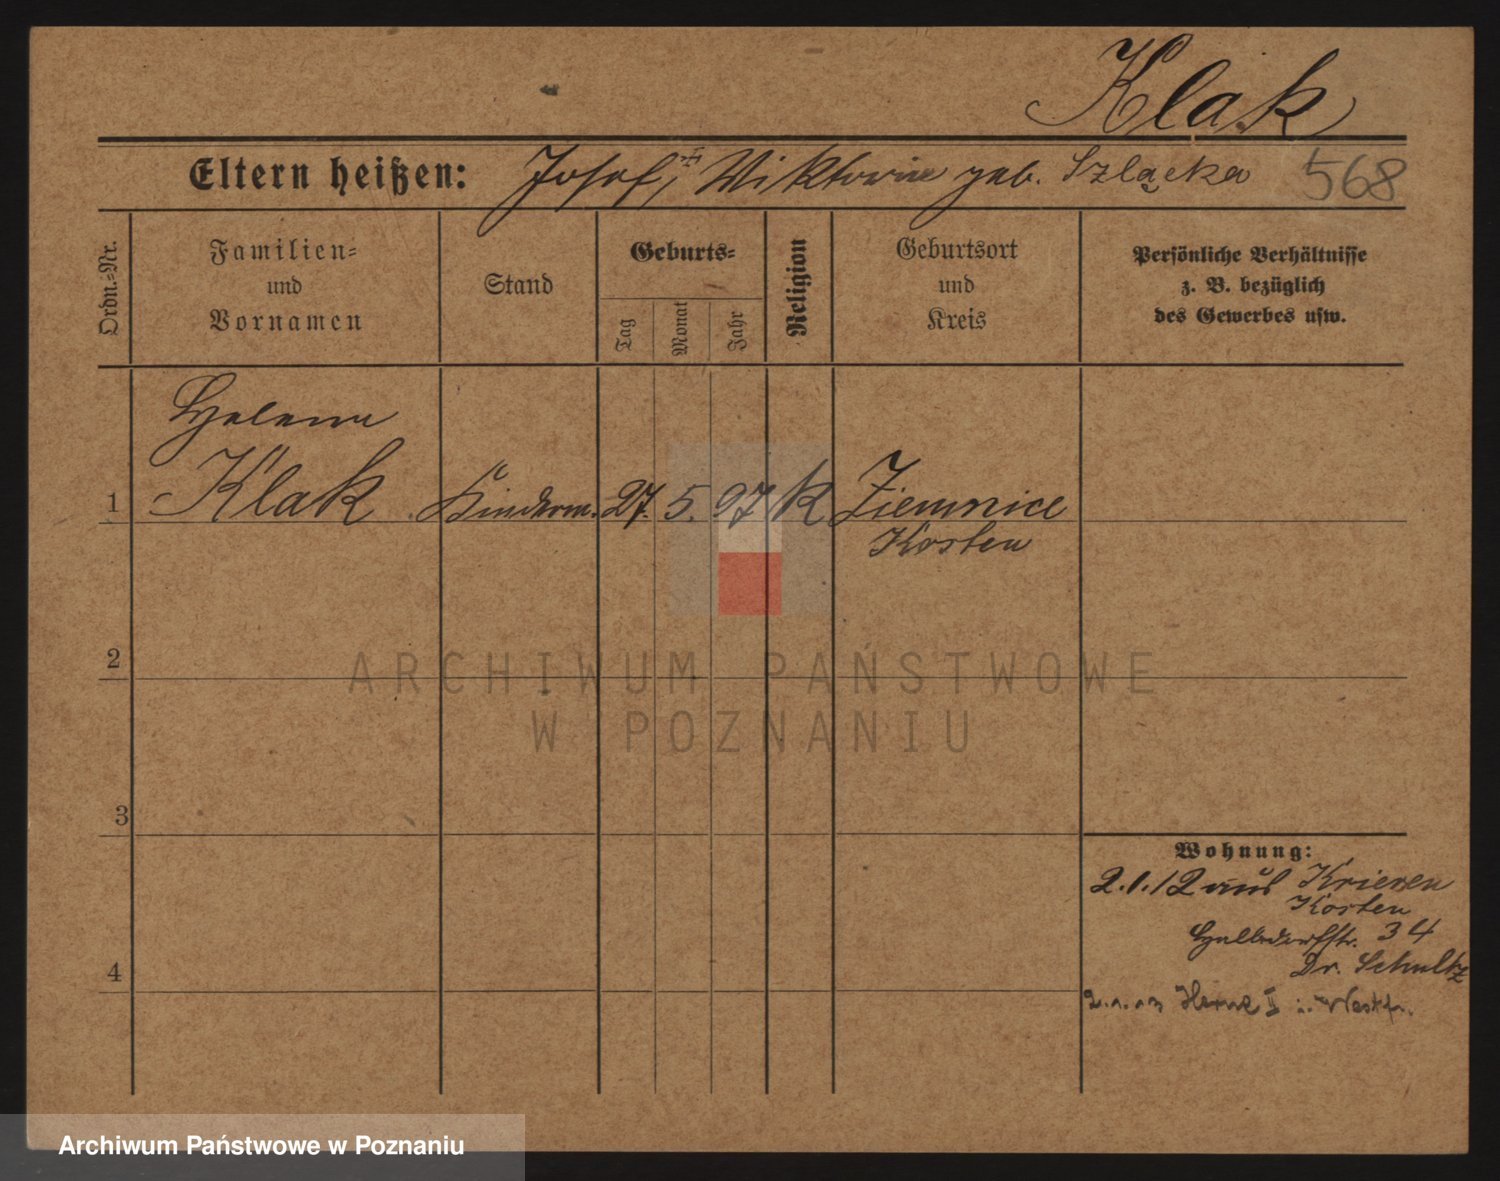 Klak
Eltern heißen: Josef, Wiktorie geb. Szlącka 568
Ordn.=Nr.
Familien=
und
Vornamen
Stand
Geburts=
Tag
Monat
Jahr
Religion
Geburtsort
und
Kreis
Persönliche Verhältnisse
z. B. bezüglich
des Gewerbes usw.
Helene
1 Klak Kinderm. 27. 5. 97 K Ziemnice
Kosten
2
3
4
Wohnung:
2.1.12 aus Kriewen
Kosten
34
Dr. Schultz
Herne II i. Westf.
ARCHIWUM PAŃSTWOWE
W POZNANIU
Archiwum Państwowe w Poznaniu